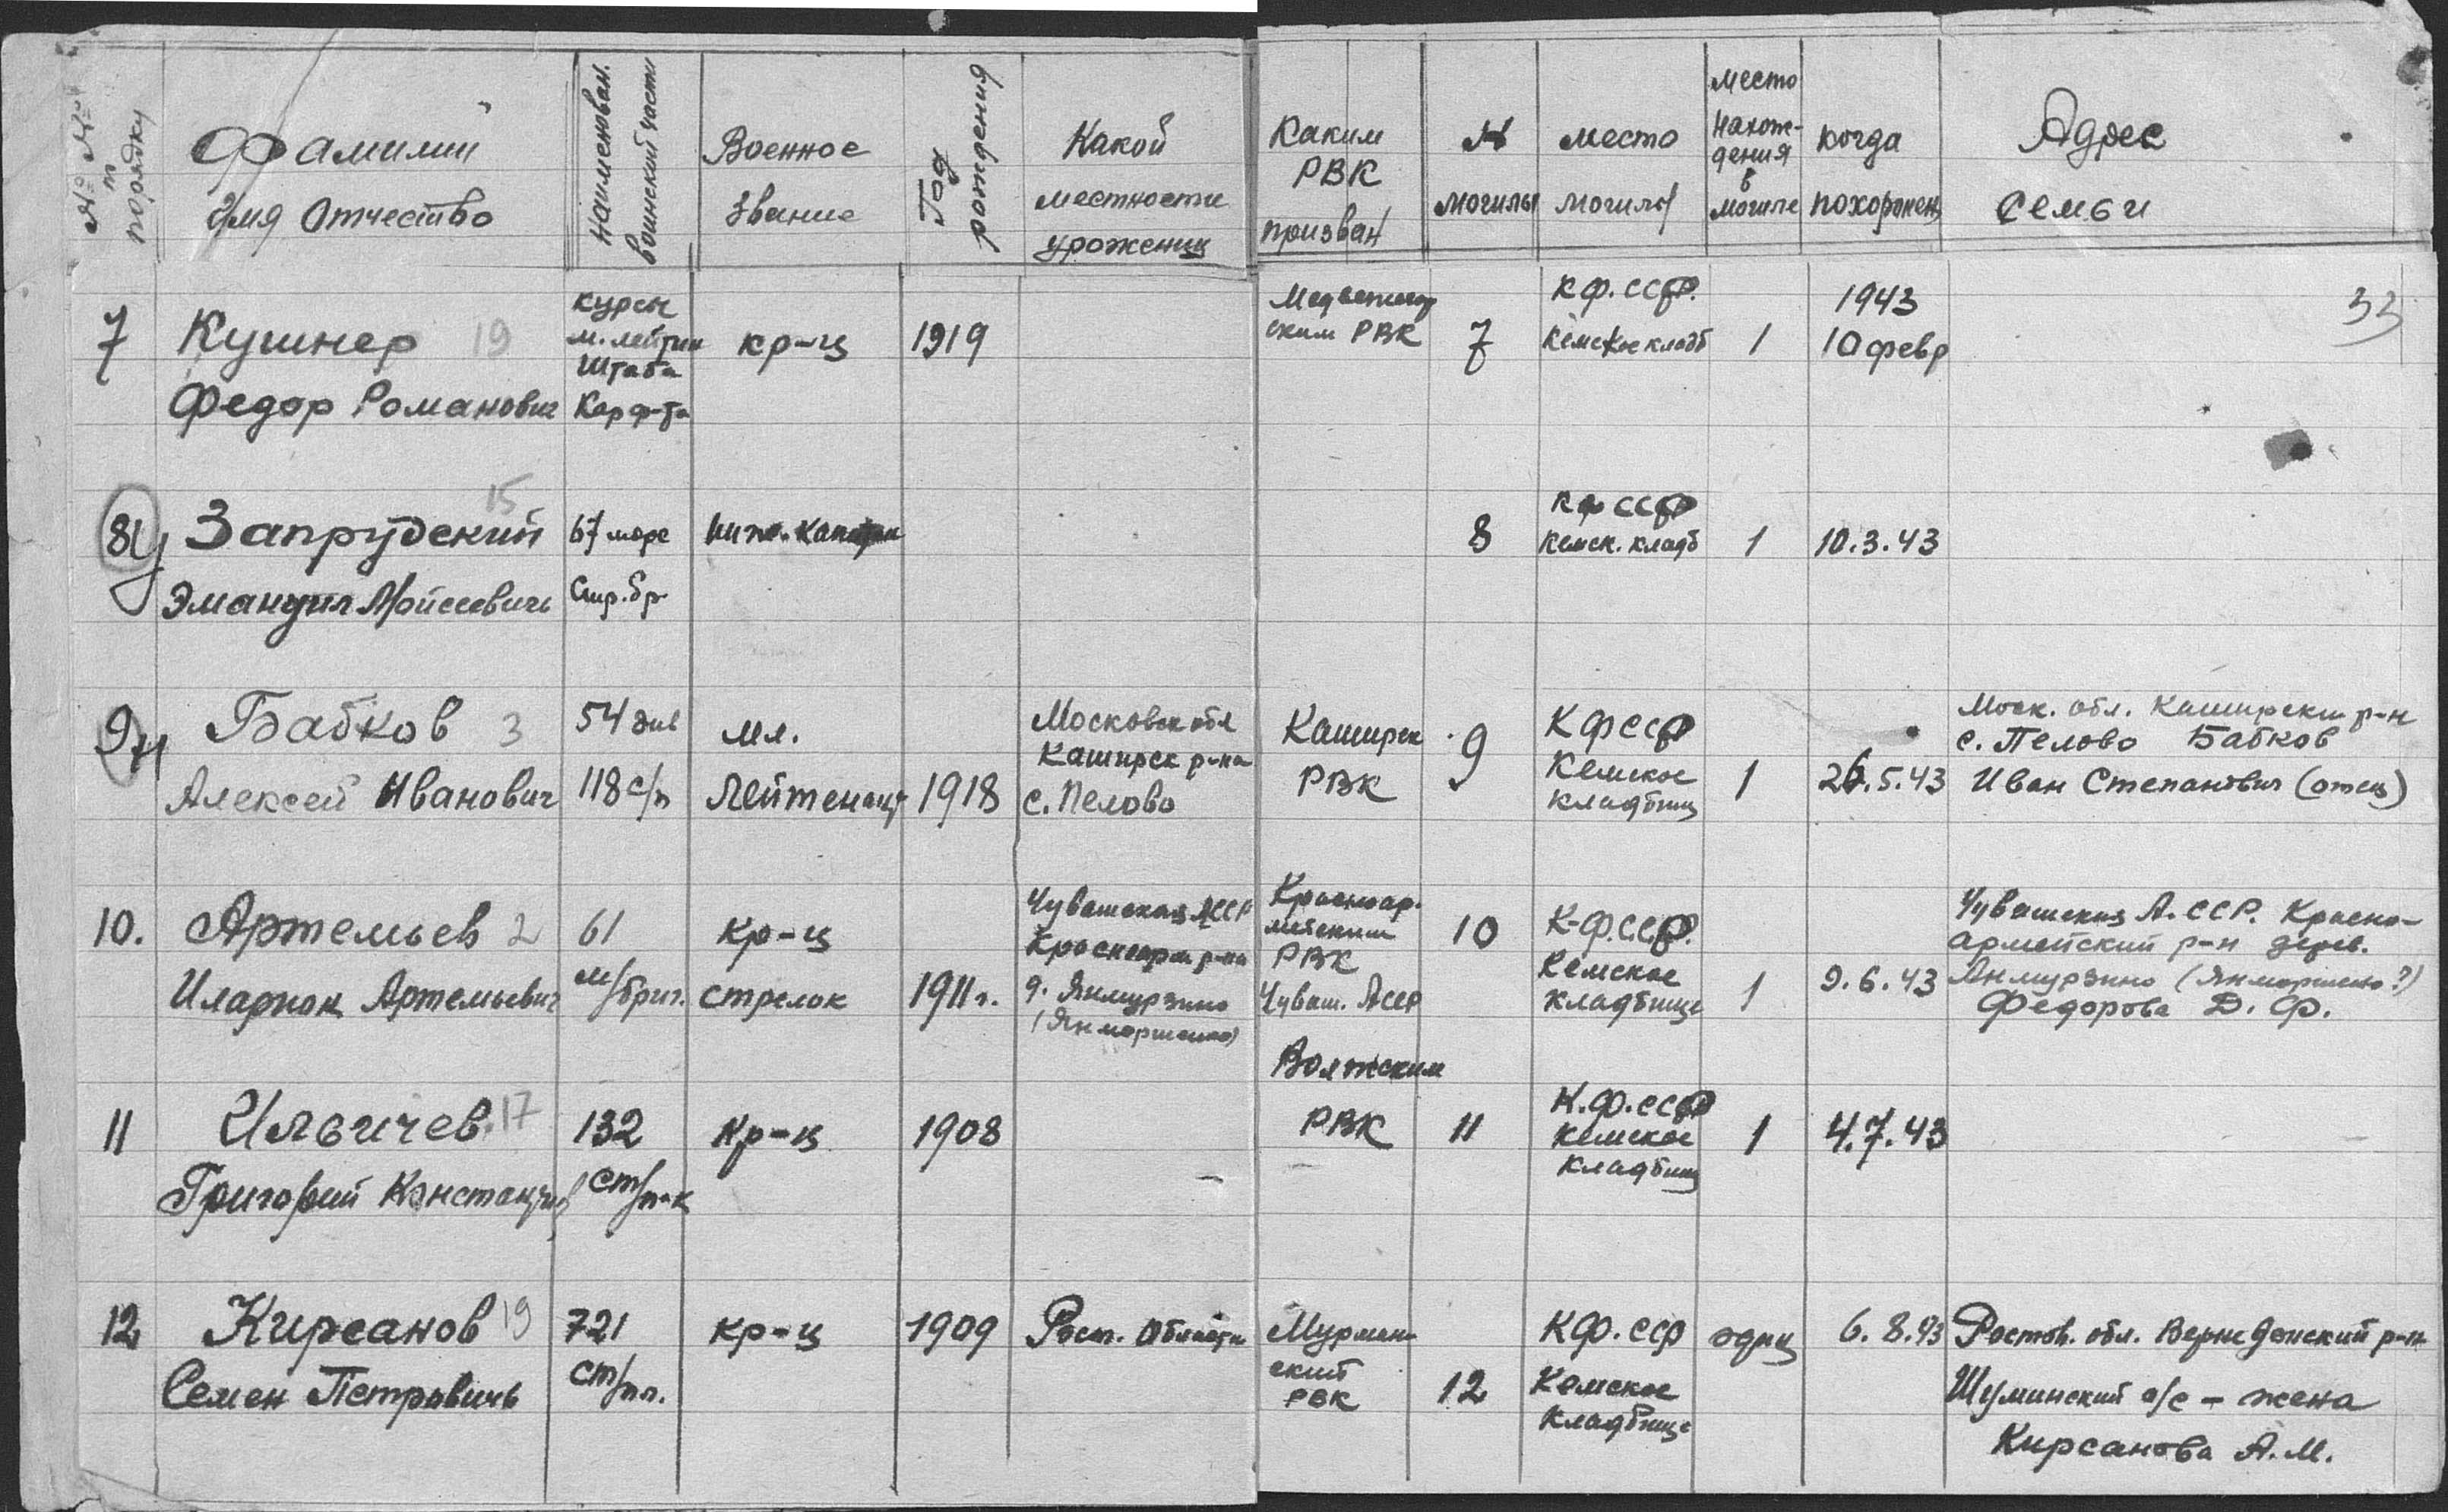 № № по порядку
Фамилии
Имя Отчество
Наименован. воинский части
Военное
Звание
Год рождения
Какой
местности
уроженец
Каким
РВК
призван
№
могилы
место
могилы
место
нахож-
дения
в
могиле
когда
похоронен
Адрес
семьи
33
7
Кушнер 19
Федор Романович
курсы
м. лейтен
Штаба
Кар ф-та
кр-ц
1919
Медвежьегор
ским РВК
7
К ф. ССР.
Кемское кладб
1
1943
10 февр
8
Запрудский 15
Эмануил Мойсеевичь
67 морс
Стр. бр.
инж. капитан
8
К ф ССР
Кемск. кладб
1
10.3.43
9
Бабков 3
Алексей Иванович
54 див
118 с/п
мл.
лейтенант
1918
Московск обл
Каширск р-на
с. Пелово
Каширск
РВК
9
КФССР
Кемское
кладбищ
1
26.5.43
Моск. обл. Каширский р-н
с. Пелово Бабков
Иван Степанович (отец)
10.
Артемьев 2
Иларион Артемьевич
61
м/бриг.
Кр-ц
стрелок
1911 г.
Чувашская АССР
Красноарм р-на
д. Янмурзино
(Янморшено)
Красноар-
мейским
РВК
Чуваш. АССР
10
К-Ф.С.С.Р.
Кемское
кладбище
1
9.6.43
Чувашская А.ССР. Красно-
армейский р-н дерев.
Янмурзино (Янморшено?)
Федорова Д. Ф.
11
Ильичев 17
Григорий Константин
132
ст/п-к
Кр-ц
1908
Волжским
РВК
11
К.Ф.ССР
Кемское
кладбищ
1
4.7.43
12
Кирсанов 19
Семен Петровичь
721
ст/пп.
кр-ц
1909
Рост. Области
Мурман-
ский
РВК
12
КФ.ССР
Кемское
кладбище
один
6.8.43
Ростов. обл. Верне Донский р-н
Шуминский с/с - жена
Кирсанова А.М.